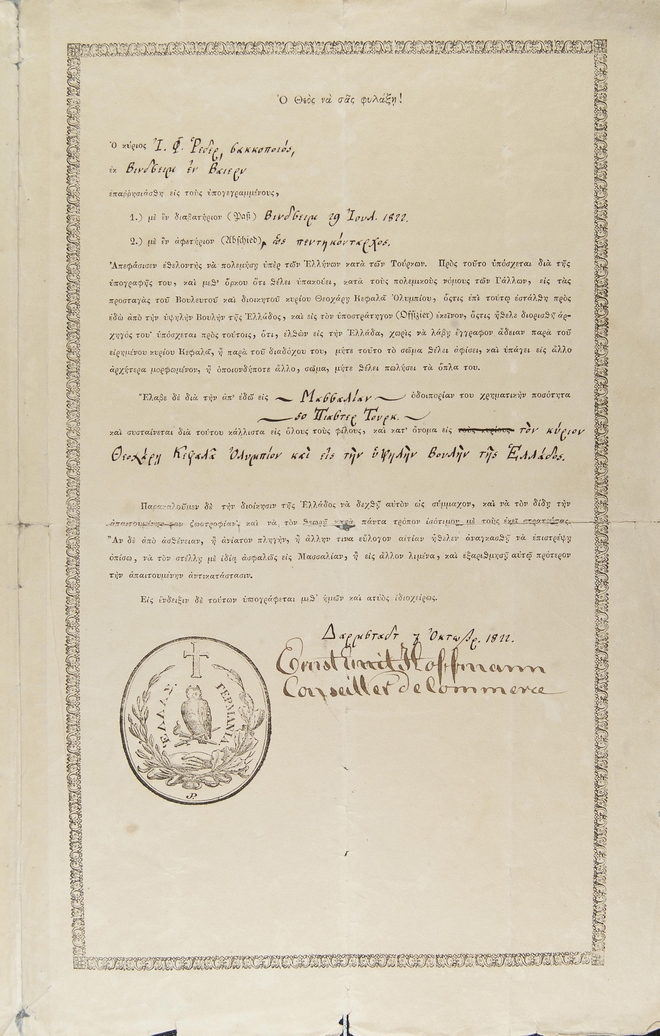 Ὁ Θεὸς νὰ σᾶς φυλάξῃ!
Ὁ κύριος Ἰ. Φ. Ῥεδερ, σακκοποιός,
ἐκ Βινδσειμ ἐν Βαιερν
ἐπαῤῥησιάσθη εἰς τοὺς ὑπογεγραμμένους,
1.) μὲ ἓν διαβατήριον (Paß) Βινδσειμ 29 Ἰουλ. 1822.
2.) μὲ ἓν ἀφετήριον (Abschied), ὡς πεντηκόνταρχος.
Ἀπεφάσισεν ἐθελοντὴς νὰ πολεμήσῃ ὑπὲρ τῶν Ἑλλήνων κατὰ τῶν Τούρκων. Πρὸς τοῦτο ὑπόσχεται διὰ τῆς
ὑπογραφῆς του, καὶ μεθ' ὅρκου ὅτι θέλει ὑπακούει, κατὰ τοὺς πολεμικοὺς νόμους τῶν Γάλλων, εἰς τὰς
προσταγὰς τοῦ Βουλευτοῦ καὶ διοικητοῦ κυρίου Θεοχάρη Κεφαλᾶ Ὀλυμπίου, ὅςτις ἐπὶ τούτῳ ἐστάλθη πρὸς
ἐδῶ ἀπὸ τὴν ὑψηλὴν Βουλὴν τῆς Ἑλλάδος, καὶ εἰς τὸν ὑποστράτηγον (Offizier) ἐκεῖνον, ὅςτις ἤθελε διορισθῆ ἀρ-
χηγός του· ὑπόσχεται πρὸς τούτοις, ὅτι, ἐλθὼν εἰς τὴν Ἑλλάδα, χωρὶς νὰ λάβῃ ἔγγραφον ἄδειαν παρὰ τοῦ
εἰρημένου κυρίου Κεφαλᾶ, ἢ παρὰ τοῦ διαδόχου του, μήτε τοῦτο τὸ σῶμα θέλει ἀφίσει, καὶ ὑπάγει εἰς ἄλλο
ἀρχήτερα μορφωμένον, ἢ ὁποιονδήποτε ἄλλο, σῶμα, μήτε θέλει πωλήσει τὰ ὅπλα του.
Ἔλαβε δὲ διὰ τὴν ἀπ' ἐδῶ εἰς Μασσαλίαν ὁδοιπορίαν του χρηματικὴν ποσότητα
50 Πιαστερ Τουρκ.
καὶ συσταίνεται διὰ τούτου κάλλιστα εἰς ὅλους τοὺς φίλους, καὶ κατ' ὄνομα εἰς τοὺς κυρίους τὸν κύριον
Θεοχάρη Κεφαλᾶ Ὀλυμπίον καὶ εἰς τὴν ὑψηλὴν Βουλὴν τῆς Ἑλλάδος.
Παρακαλοῦμεν δὲ τὴν διοίκησιν τῆς Ἑλλάδος νὰ δεχθῇ αὐτὸν ὡς σύμμαχον, καὶ νὰ τὸν δίδῃ τὴν
ἀπαιτουμένην ζωοτροφίαν, καὶ νὰ τὸν θεωρῇ κατὰ πάντα τρόπον ἰσότιμον μὲ τοὺς ἐκεῖ στρατιώτας.
Ἂν δὲ ἀπὸ ἀσθένειαν, ἢ ἀνίατον πληγὴν, ἢ ἄλλην τινα εὔλογον αἰτίαν ἤθελεν ἀναγκασθῇ νὰ ἐπιστρέψῃ
ὀπίσω, νὰ τὸν στέλλῃ μὲ ἰδίη ἀσφαλῶς εἰς Μασσαλίαν, ἢ εἰς ἄλλον λιμένα, καὶ ἐξαριθμισῇ αὐτῷ πρότερον
τὴν ἀπαιτουμένην ἀντικατάστασιν.
Εἰς ἔνδειξιν δὲ τούτων ὑπογράφεται μεθ' ἡμῶν καὶ ἀτυὸς ἰδιοχείρως.
Δαρμστατ 7 Ὀκτωβρ. 1822.
Ernst Emil Hoffmann
Conseiller de Commerce
ΕΛΛΑΣ. ΓΕΡΜΑΝΙΑ